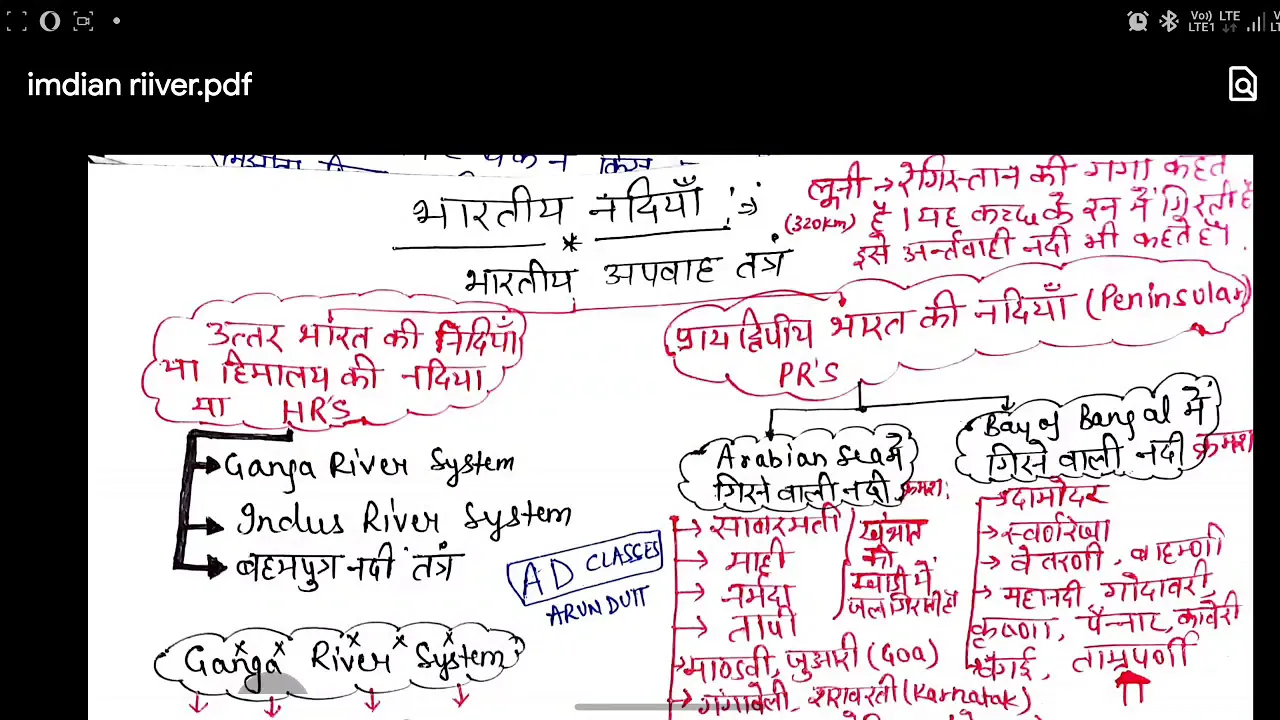 Vo) LTE
LTE1
imdian riiver.pdf
भारतीय नदियाँ
भारतीय अपवाह तंत्र
लूनी → रेगिस्तान की गंगा कहते
(320km) है। यह कच्छ के रन में गिरती है
इसे अर्न्तवाही नदी भी कहते है।
उत्तर भारत की नदियाँ
या हिमालय की नदिया
या HR'S
→ Ganga River System
→ Indus River System
→ ब्रहमपुत्र नदी तंत्र
प्रायद्विपीय भारत की नदियाँ (Peninsular)
PR'S
Arabian Sea में
गिरने वाली नदी क्रमश:
→ साबरमती
→ माही
→ नर्मदा
→ तापी
खंभात
की
खाड़ी में
जल गिराती है
→ माण्डवी, जुआरी (Goa)
→ गंगावेली, शरावती (Karnatak)
Bay of Bangal में
गिरने वाली नदी क्रमश
→ दामोदर
→ स्वर्णरेखा
→ वेतरणी, बाहमणी
→ महानदी, गोदावरी
कृष्णा, पेन्नार, कावेरी
वैगई, ताम्रपर्णी
AD CLASSES
ARUN DUTT
Ganga River System